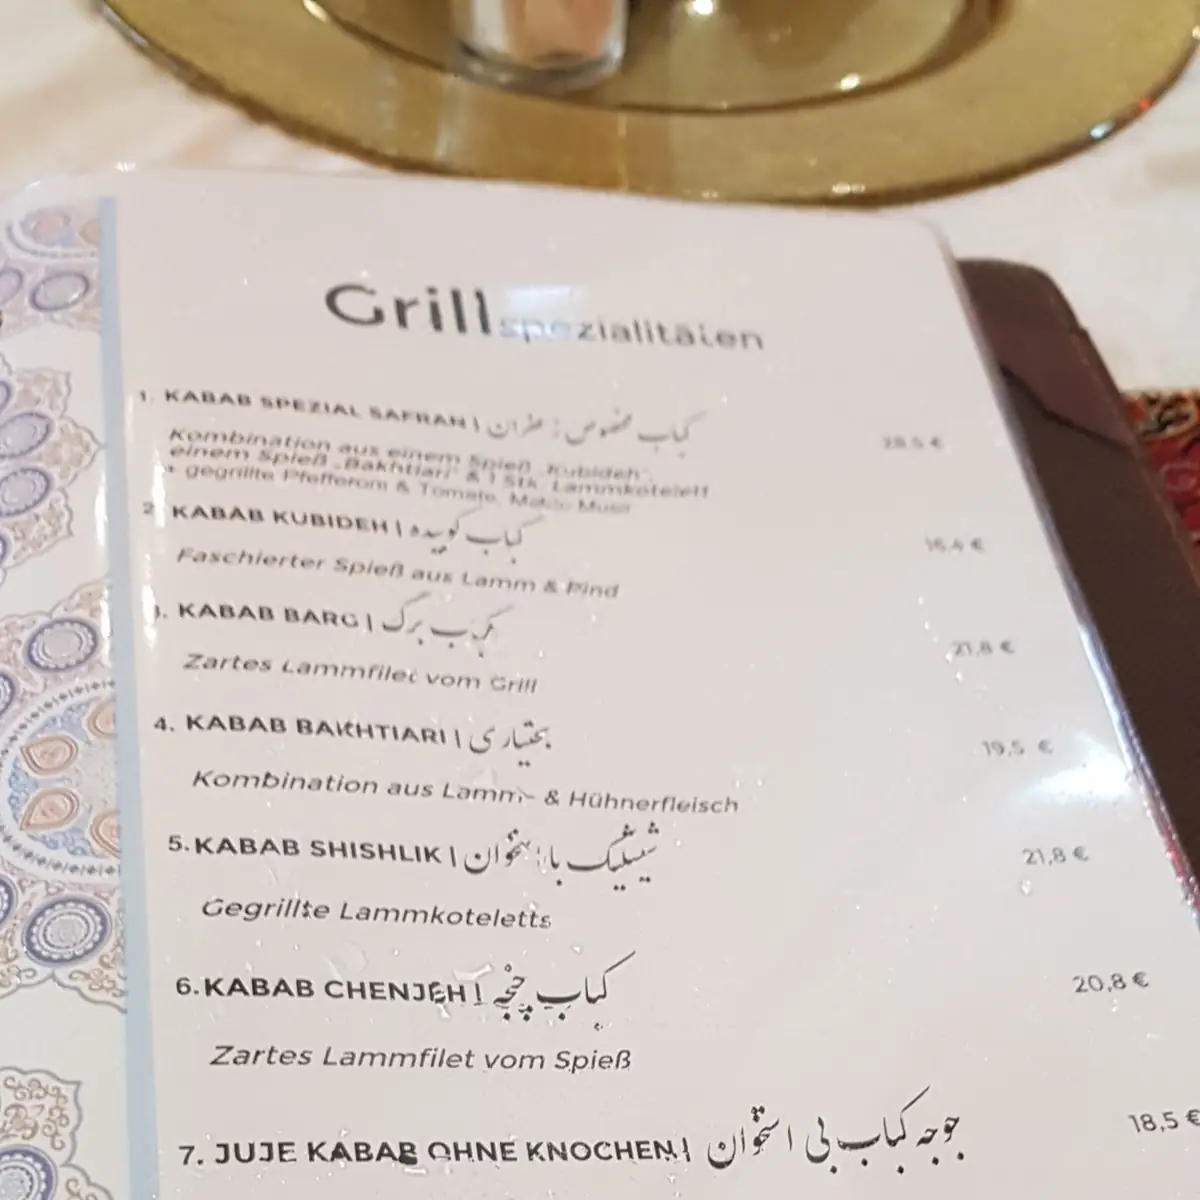 Grillspezialitäten
1. KABAB SPEZIAL SAFRAN | کباب مخصوص زعفران 28,5 €
Kombination aus einem Spieß „Kubideh",
einem Spieß „Bakhtiari" & 1 Stk. Lammkotelett
+ gegrillte Pfefferoni & Tomate,
2. KABAB KUBIDEH | کباب کوبیده 16,4 €
Faschierter Spieß aus Lamm & Rind
3. KABAB BARG | کباب برگ 21,8 €
Zartes Lammfilet vom Grill
4. KABAB BAKHTIARI | بختیاری 19,5 €
Kombination aus Lamm- & Hühnerfleisch
5. KABAB SHISHLIK | شیشلیک با استخوان 21,8 €
Gegrillte Lammkoteletts
6. KABAB CHENJEH | کباب چنجه 20,8 €
Zartes Lammfilet vom Spieß
7. JUJE KABAB OHNE KNOCHEN | جوجه کباب بی استخوان 18,5 €